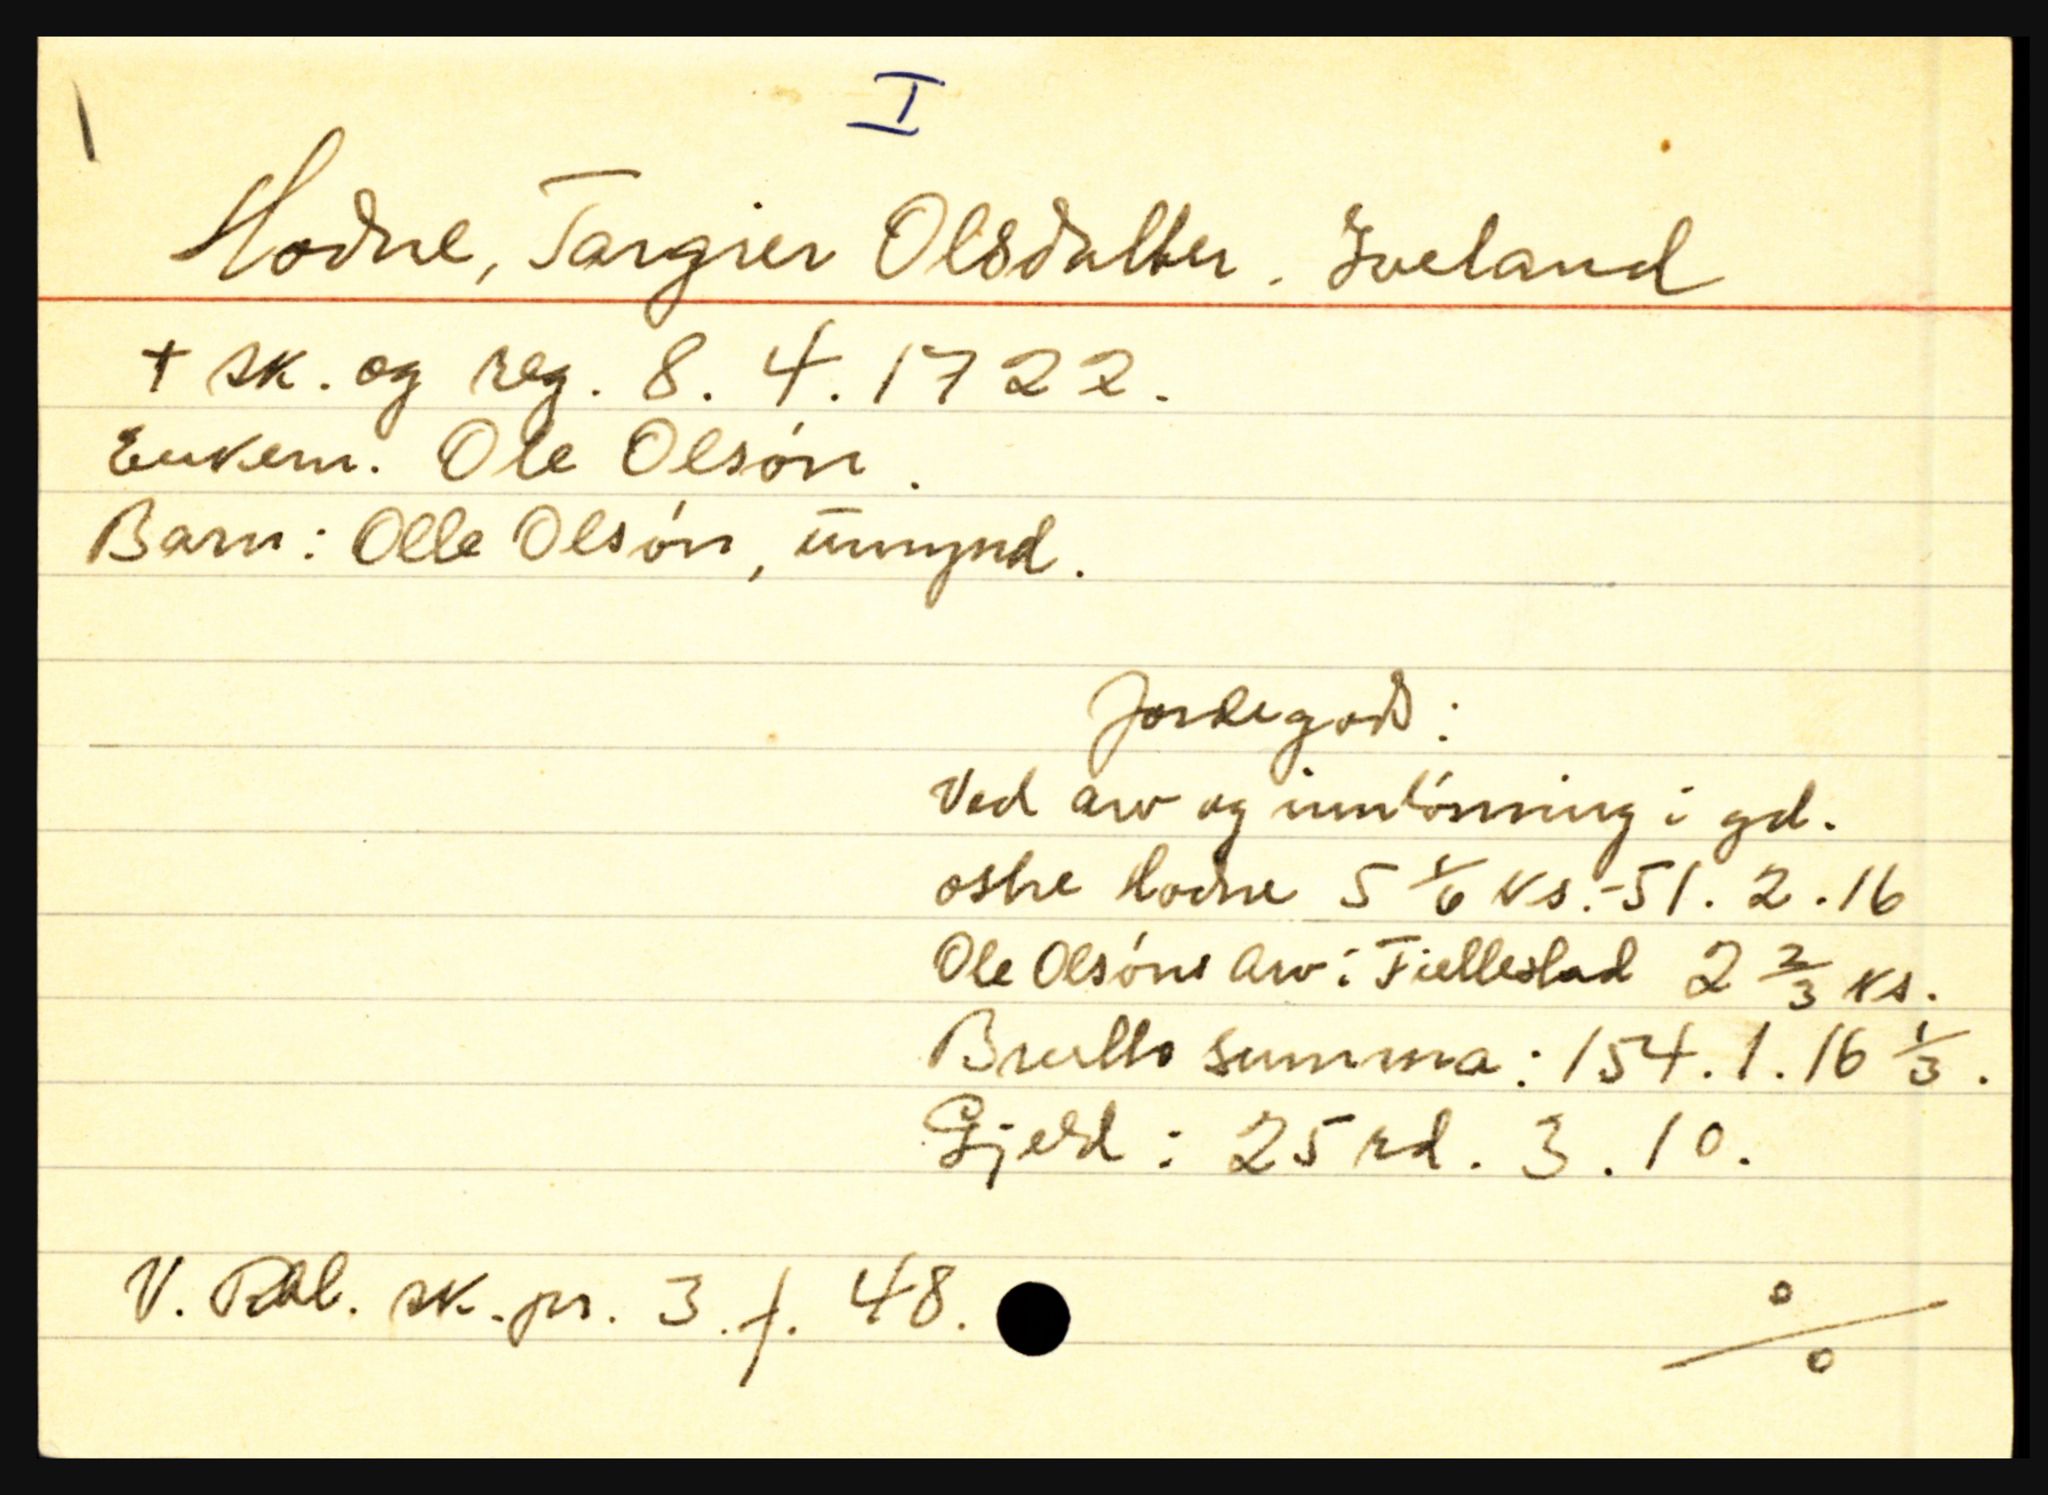 I
Hodne, Targier Olsdatter. Iveland
† sk. og reg. 8. 4. 1722.
Enkem. Ole Olsón.
Barn: Olle Olsón, umynd.
Jordegods:
Ved arv og innlösning i gd.
östre Hodne 5 1/6 ks.- 51. 2. 16
Ole Olsóns arv i Fiellestad 2 2/3 ks.
Brutto summa: 154. 1. 16 1/3.
Gjeld: 25 rd. 3. 10.
V. Rbl. sk. pr. 3. f. 48.
%